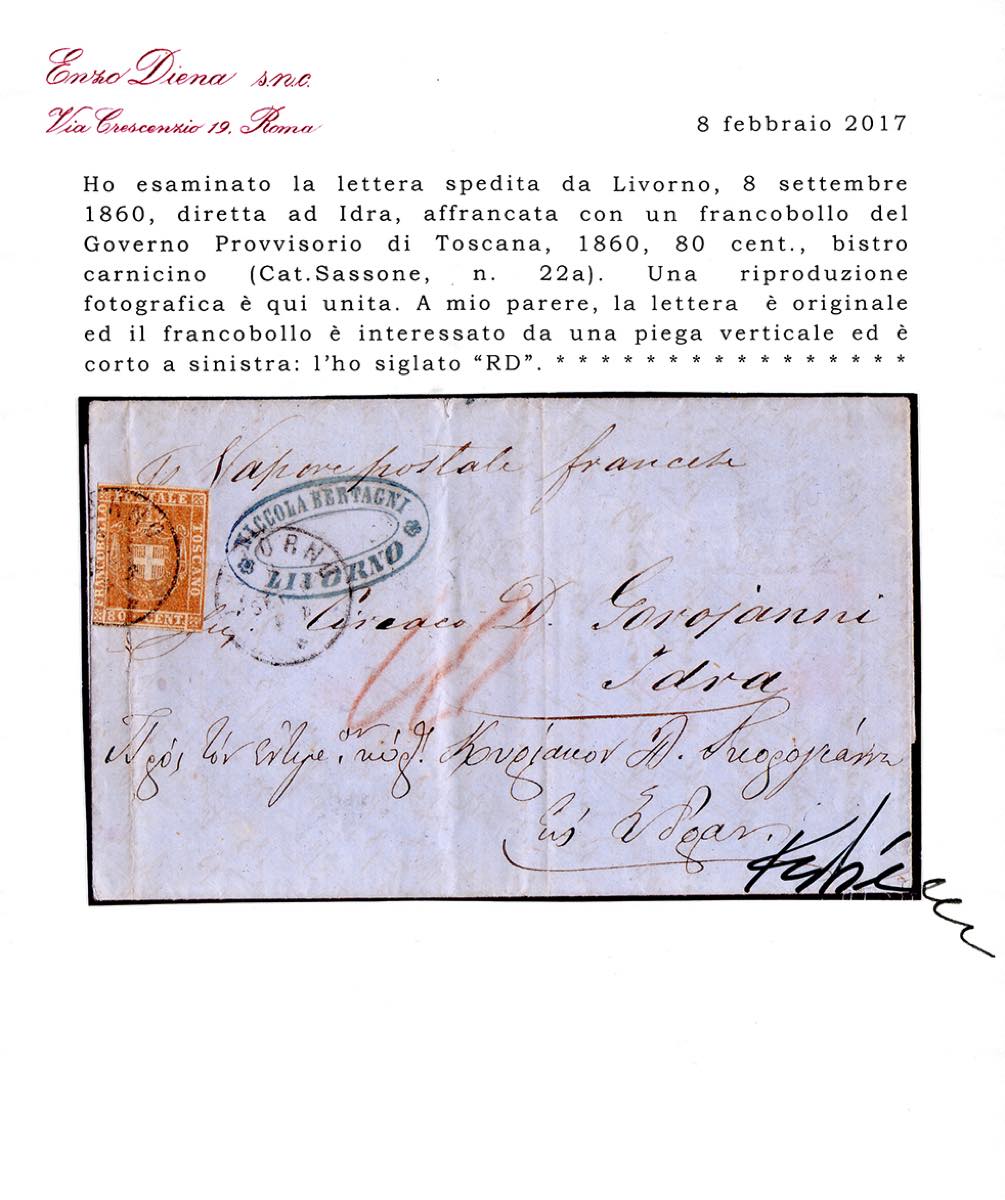 Enzo Diena s.n.c.
Via Crescenzio 19, Roma
8 febbraio 2017
Ho esaminato la lettera spedita da Livorno, 8 settembre
1860, diretta ad Idra, affrancata con un francobollo del
Governo Provvisorio di Toscana, 1860, 80 cent., bistro
carnicino (Cat.Sassone, n. 22a). Una riproduzione
fotografica è qui unita. A mio parere, la lettera è originale
ed il francobollo è interessato da una piega verticale ed è
corto a sinistra: l’ho siglato “RD”. * * * * * * * * * * * * * * * *
Vapore postale francese
FRANCOBOLLO POSTALE TOSCANO
80 CENT
NICCOLA BERTAGNI
LIVORNO
Sig. Ciriaco D. Gorojanni
Idra
Πρὸς τὸν Κυριάκον Δ.
Εἰς Ὕδραν.